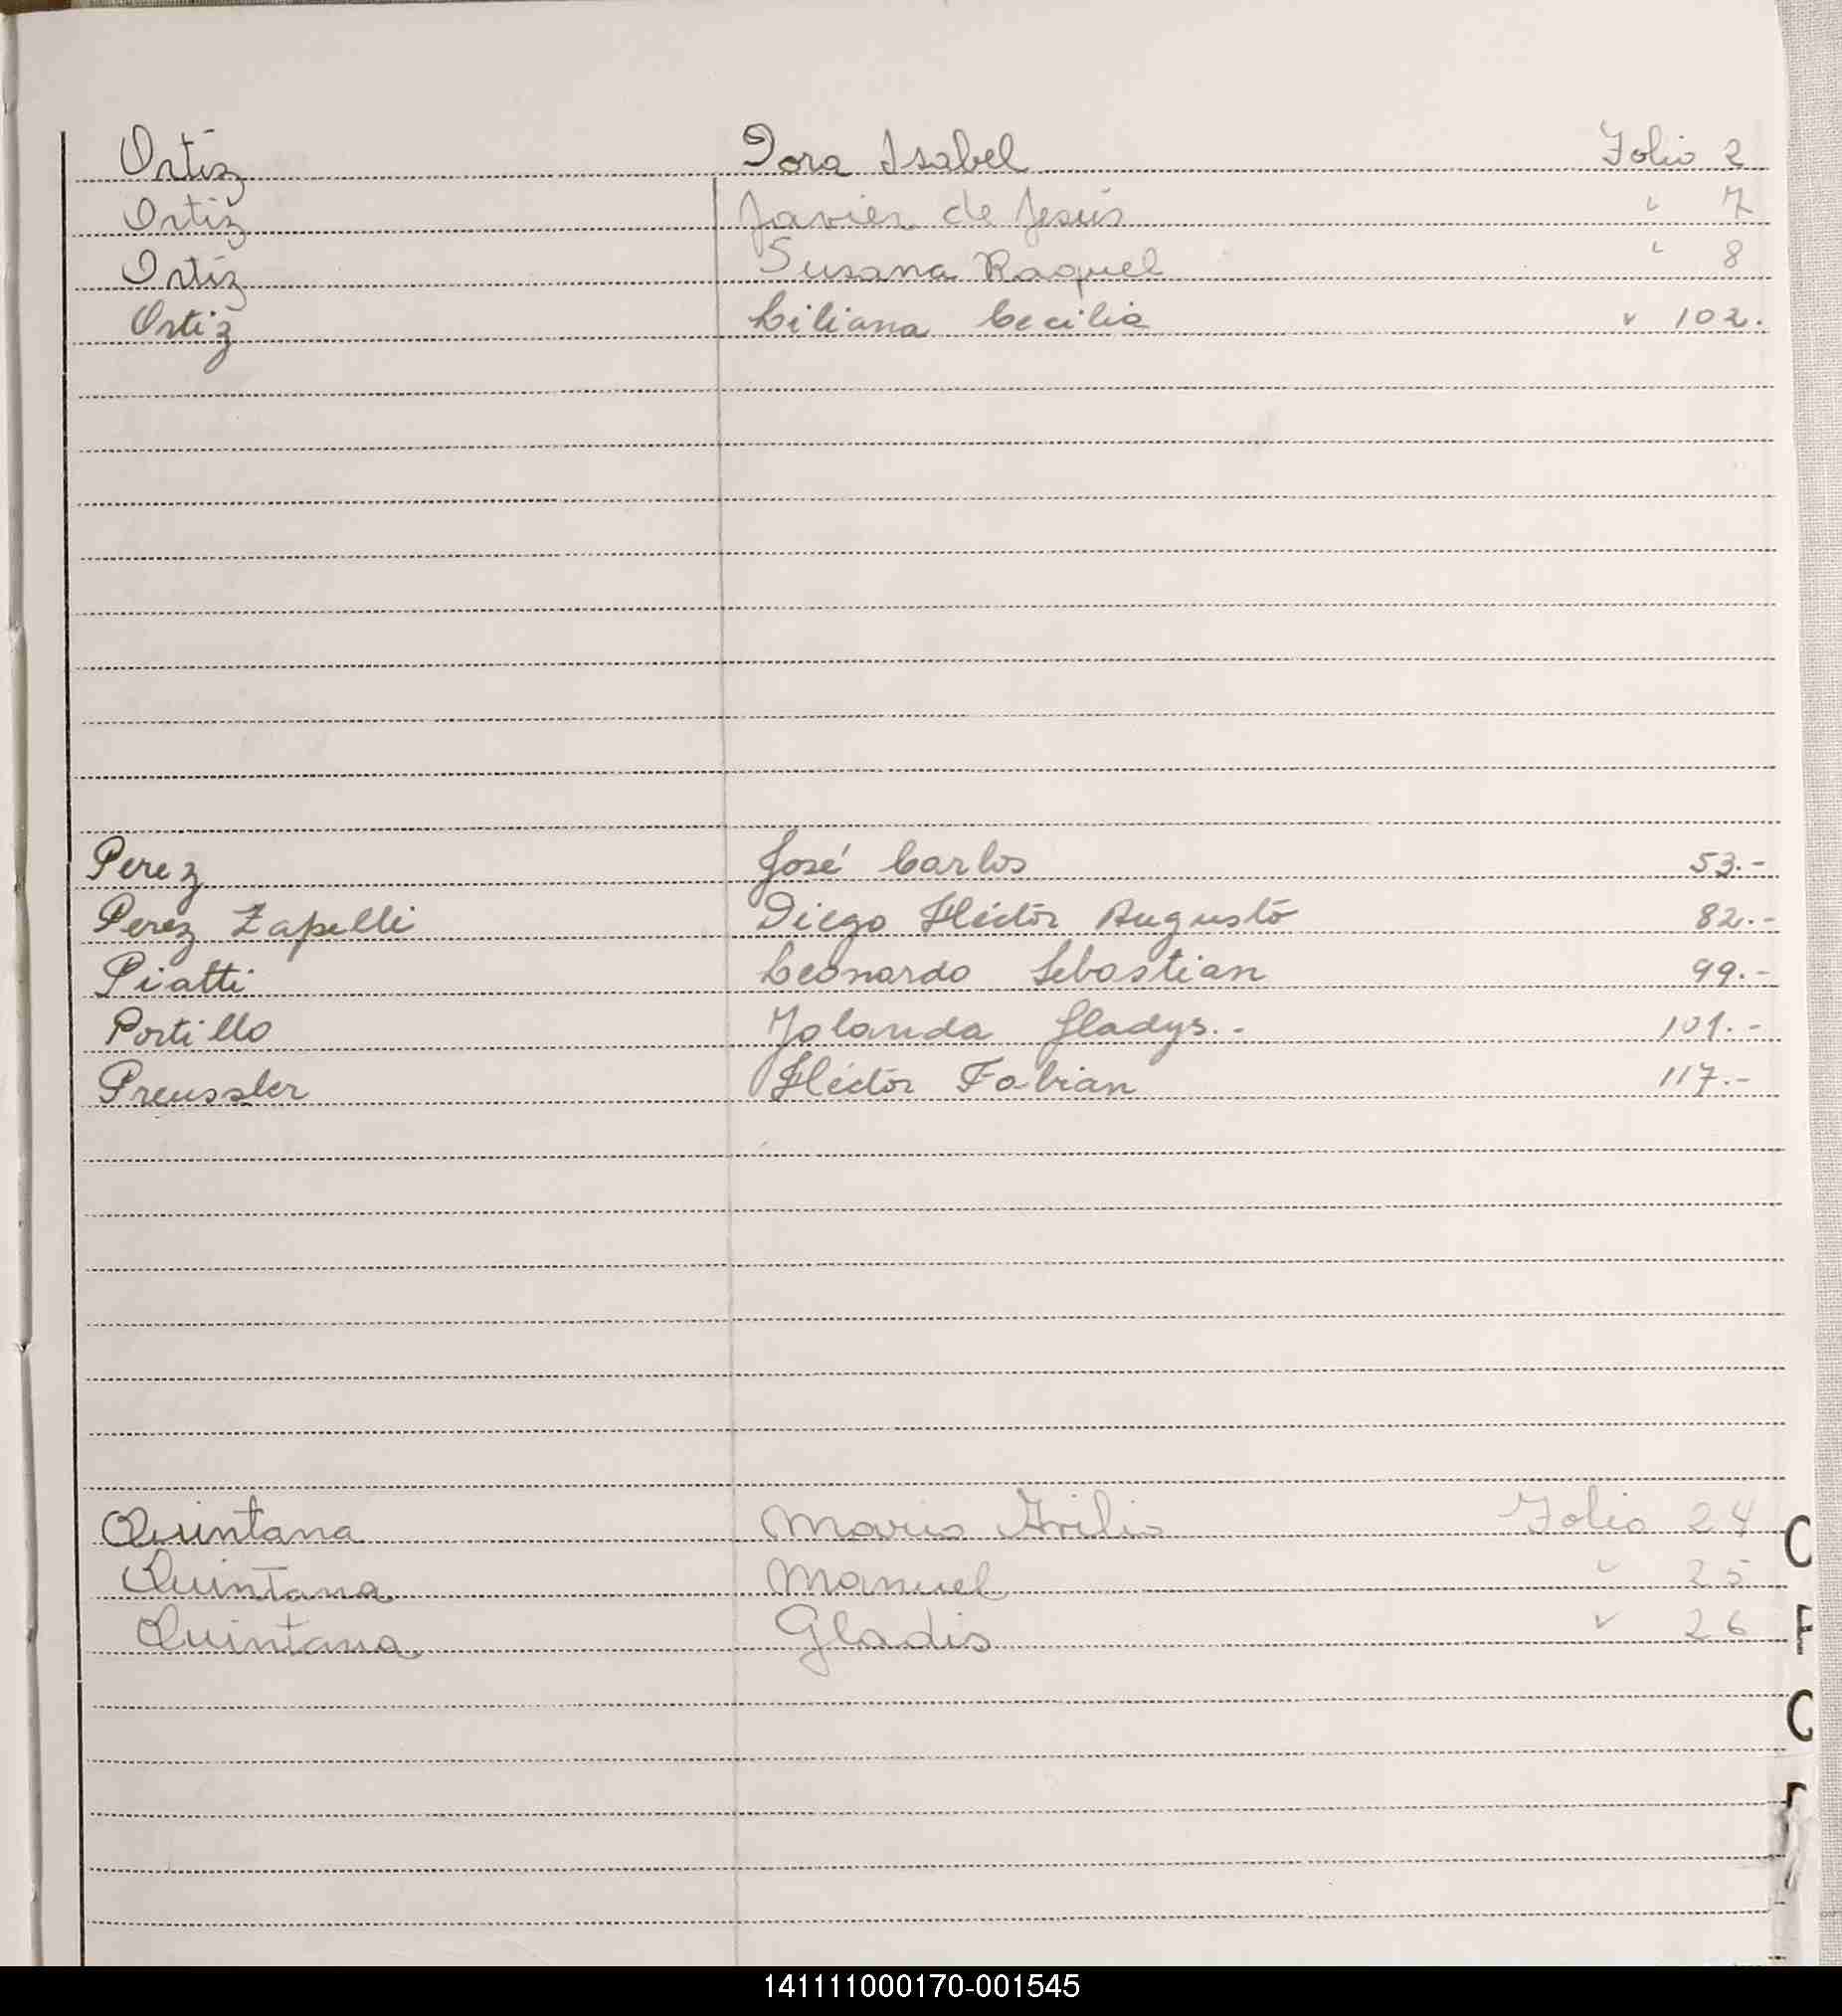 Ortiz Dora Isabel Folio 2
Ortiz Javier de Jesús " 7
Ortiz Susana Raquel " 8
Ortiz Liliana Cecilia " 102.
Perez José Carlos 53.-
Perez Zapelli Diego Héctor Augusto 82.-
Piatti Leonardo Sebastian 99.-
Portillo Yolanda Gladys.- 101.-
Preussler Héctor Fabian 117.-
Quintana Mario Folio 24
Quintana Manuel " 25
Quintana Gladis " 26
141111000170-001545